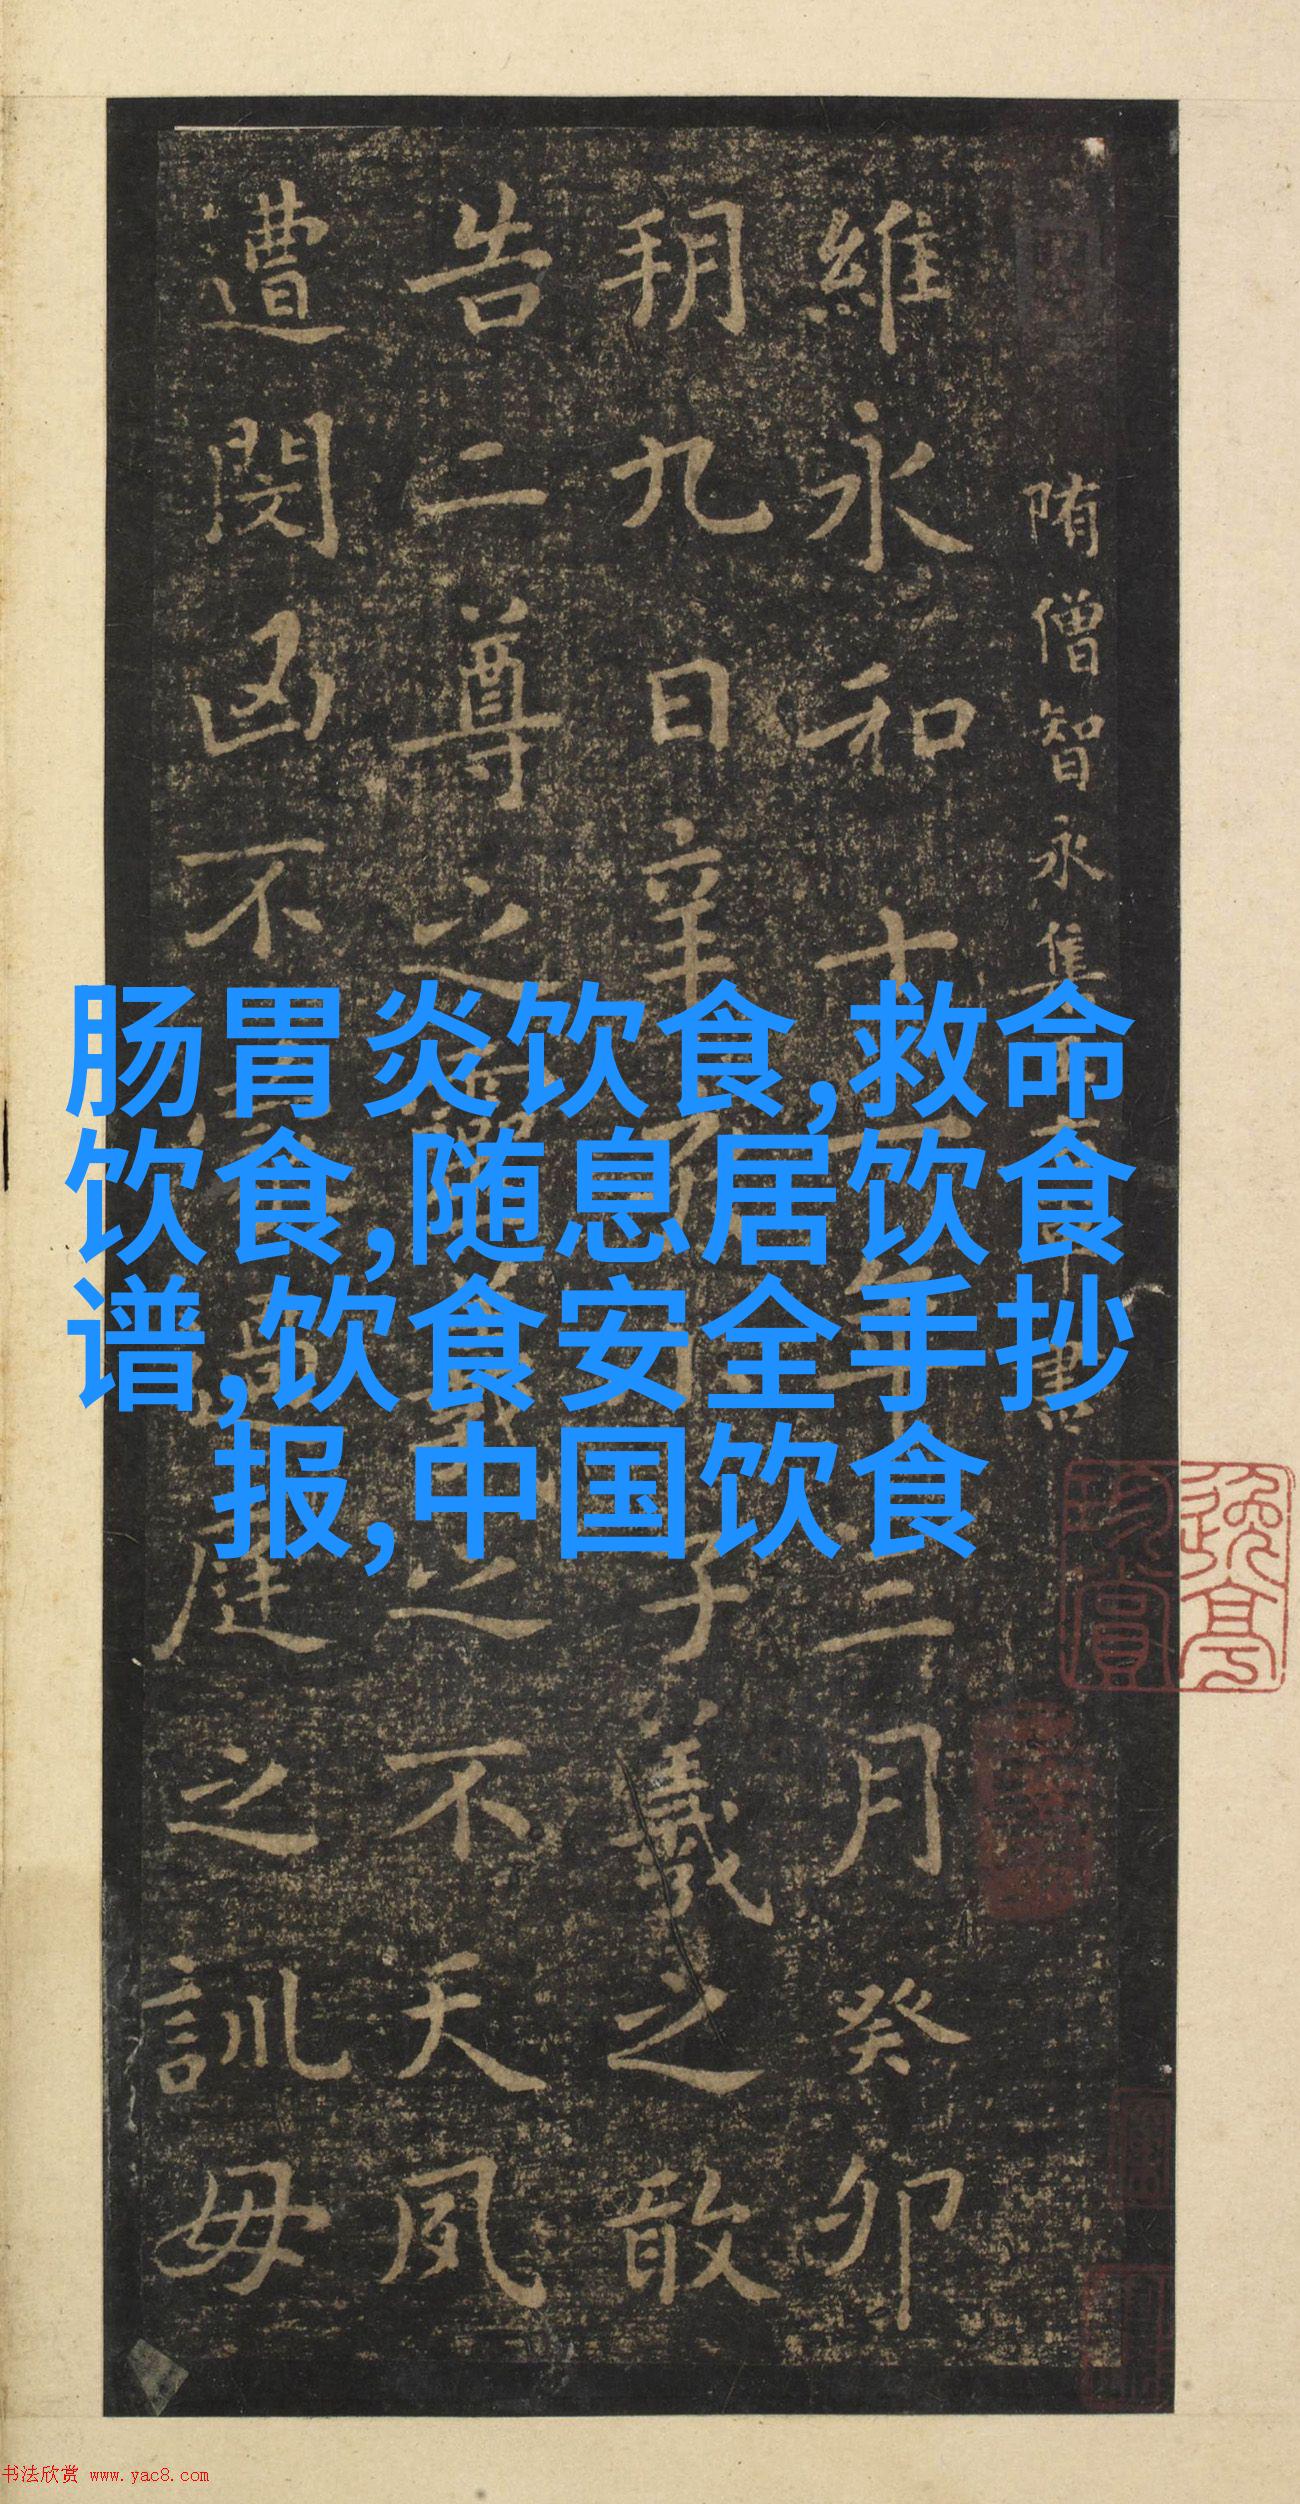 隋僧智永集
維永和十一年三月癸卯
朔九日辛亥小子羲之敢
告二尊之靈羲之不天夙
遭閔凶不蒙過庭之訓毋
肠胃炎饮食,救命
饮食,随息居饮食
谱,饮食安全手抄
报,中国饮食
珍賞
书法欣赏 www.yac8.com